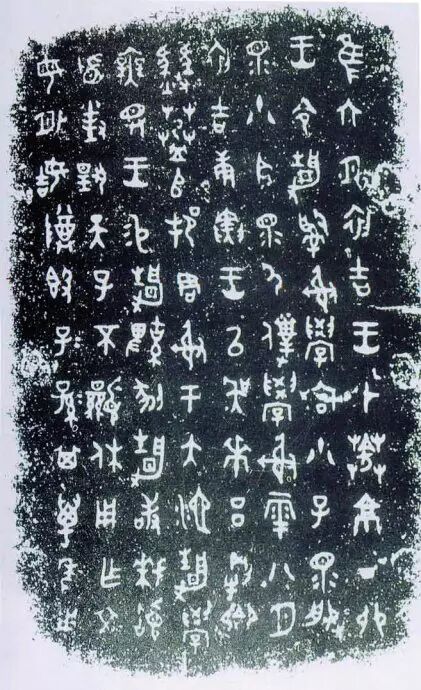 隹六月初吉王才𦰩京丁卯
王令靜𤔲射學宮小子眔服
眔小臣眔尸僕學射雩八月
初吉庚寅王以吳𠦪呂
𦰩𠂤邦周射于大池靜學
王易靜鞞剢靜敢拜稽
首對揚天子不顯休用乍文
母外姞尊簋子子孫孫其萬年用